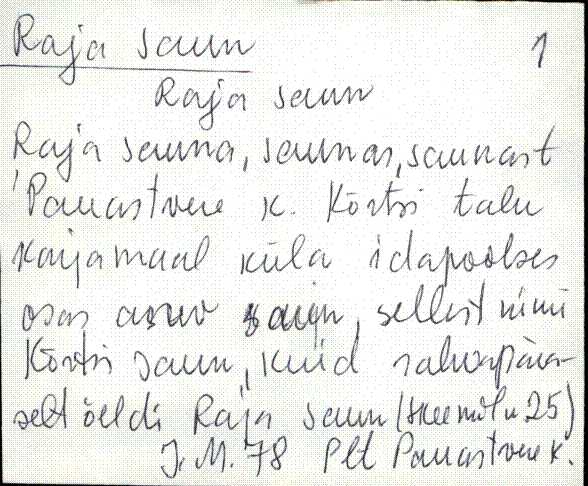 Raja saun 1
Raja saun
Raja sauna, saunas, saunast
'Pauastvere k. Kõrtsi talu
karjamaal küla idapoolses
osas asuv saun, sellest nimi
Kõrtsi saun, kuid rahvapära-
selt öeldi Raja saun (skeemil n 25)
J. M. 78 Plt Pauastvere k.